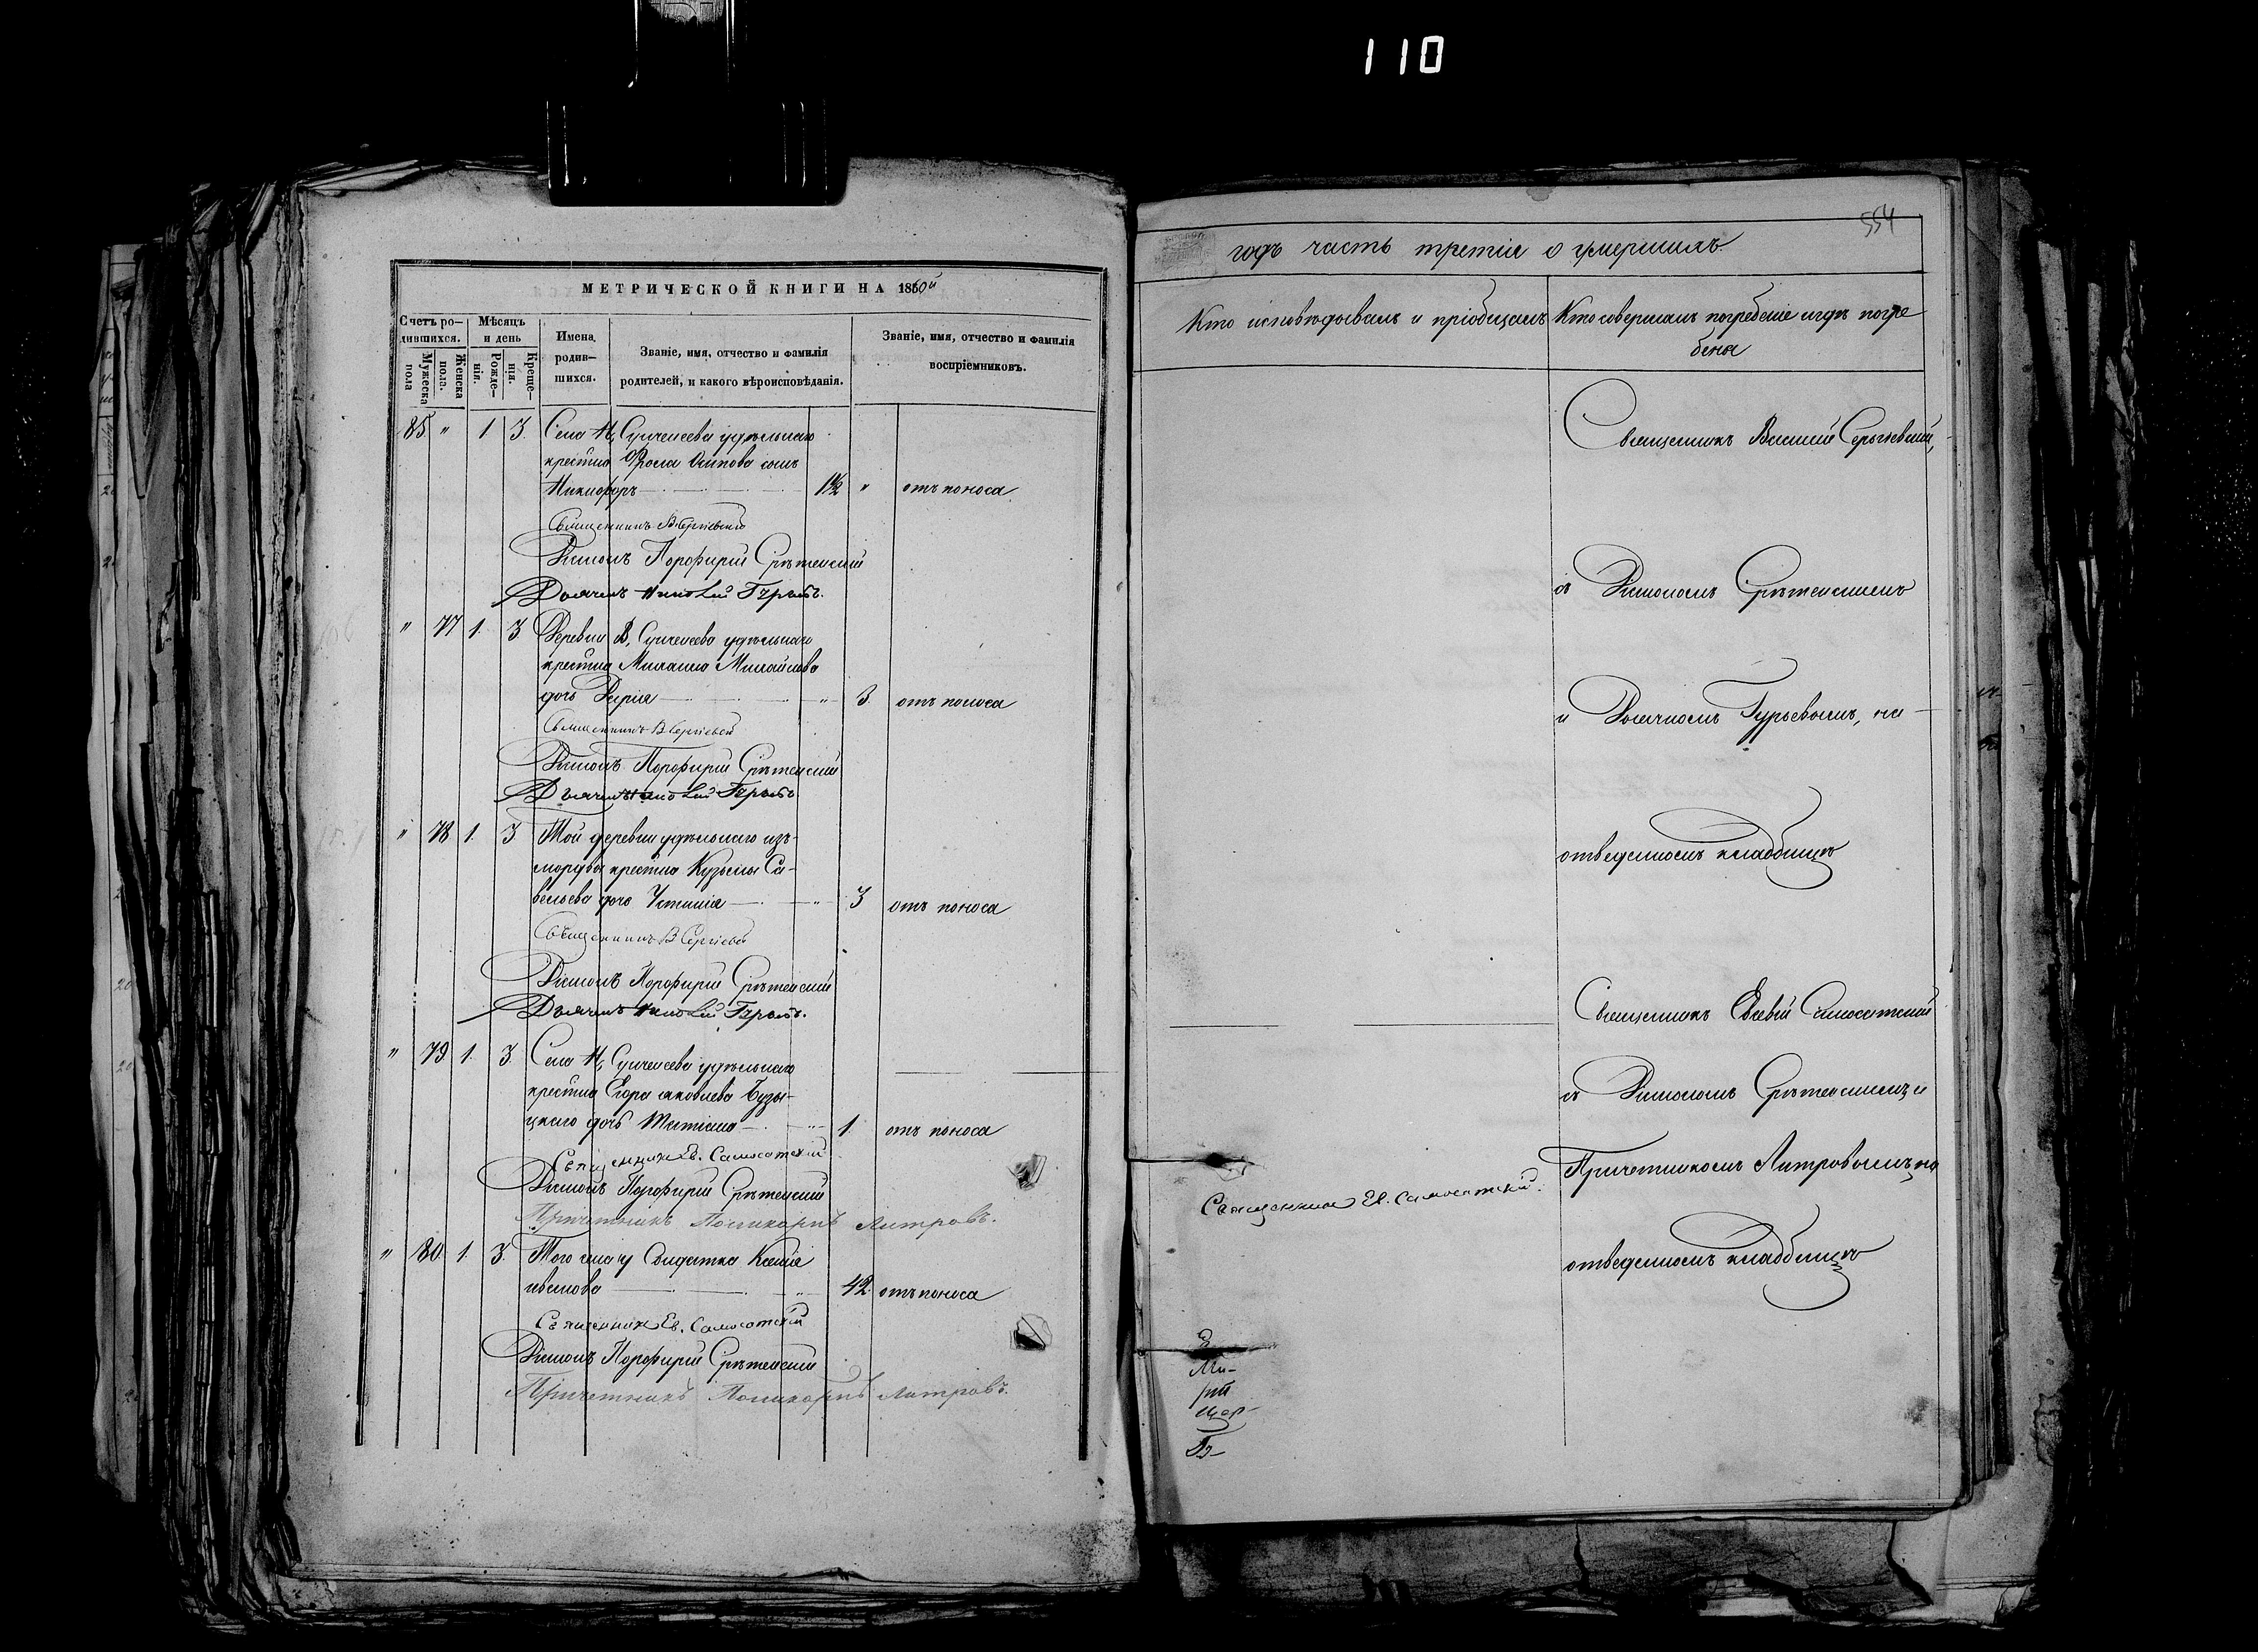 110
МЕТРИЧЕСКОЙ КНИГИ НА 1860й
Счетъ ро-
дившихся.
Мужеска
пола
Женска
пола.
Мѣсяцъ
и день
Рожде-
нія.
Креще-
нія.
Имена
родив-
шихся.
Званіе, имя, отчество и фамилія
родителей, и какого вѣроисповѣданія.
Званіе, имя, отчество и фамилія
воспріемниковъ.
85 " 1 3. Села Н, Сунчелеева удѣльнаго
крестна Фрола Осипова сынъ
Никифоръ 1½ " отъ поноса
Священникъ В Сергіевскій
Діаконъ Порфирій Срѣтенскій
Дьячекъ Николай Гурьевъ.
" 77 1. 3 Деревни В, Сунчелеева удѣльнаго
крестна Михаила Михайлова
дочь Дарія " 3. отъ поноса
Священникъ В Сергіевскій
Діаконъ Порфирій Срѣтенскій
Дьячекъ Николай Гурьевъ
" 78 1. 3 Той деревни удѣльнаго изъ
мордвы крестна Кузьмы Са-
вельева дочь Устинія " 3 отъ поноса
Священникъ В Сергіевскій
Діаконъ Порфирій Срѣтенскій
Дьячекъ Николай Гурьевъ.
" 79 1. 3. Села Н, Сунчелеева удѣльнаго
крестна Егора Яковлева
дочь Татіана " 1. отъ поноса
Священникъ Ев. Самосатскій
Діаконъ Порфирій Срѣтенскій
Причетникъ Поликарпъ Литровъ.
" 80 1. 3. Того села Солдатка Ксенія
иванова " 42. отъ поноса
Священникъ Ев. Самосатскій
Діаконъ Порфирій Срѣтенскій
Причетникъ Поликарпъ Литровъ.
554
годъ часть третія о умершихъ
Кто исповѣдывалъ и пріобщалъ
Кто совершалъ погребеніе и гдѣ погре
бены
Священникъ Василій Сергіевскій,
съ Діакономъ Срѣтенскимъ
и Дьячкомъ Гурьевымъ, на
отведенномъ кладбищѣ
Священникъ Евсевій Самосатскій
съ Діакономъ Срѣтенскимъ и
Причетникомъ Литровымъ на
отведенномъ кладбищѣ
Священникъ Ев. Самосатскій.